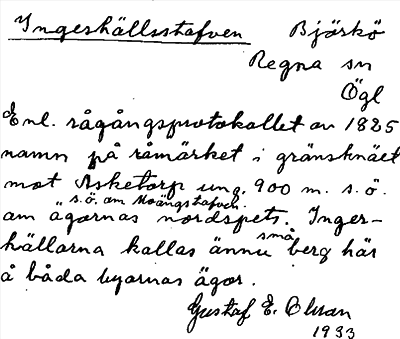 Ingeshällsstafven Björkö
Regna sn
Ögl
Enl. rågångsprotokollet av 1825
namn på råmärket i gränsknäet
mot Asketorp ung. 900 m. s.ö.
s.ö. om Moängstafven.
om ägornas nordspets. Inger-
hällarna kallas ännu små berg här
å båda byarnas ägor.
Gustaf E. Olsson
1933